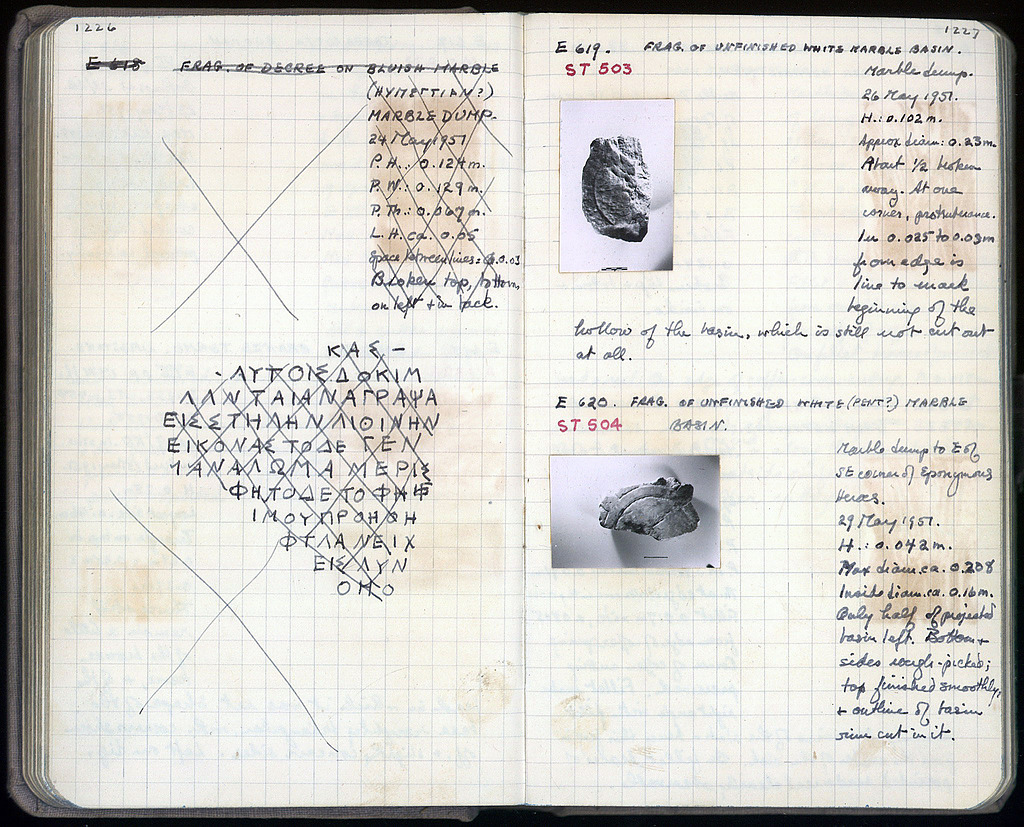 1226
E 618 FRAG. OF DECREE ON BLUISH MARBLE
(HYMETTIAN?)
MARBLE DUMP.
24 May 1951
P. H.: 0.124 m.
P. W.: 0.129 m.
P. Th.: 0.067 m.
L. H. ca. 0.05
Space between lines: 0.03
Broken top, bottom,
on left + in back.
ΚΑΣ –
- ΛΥΤΟΙΣ ΔΟΚΙΜ
ΛΛΝΤΑΙΑΝΑΓΡΑΨΑ
ΕΙΣΣΤΗΛΗΝΛΙΟΙΝΗΝ
ΕΙΚΟΝΑΣΤΟΔΕΓΕΝ
ΙΑΝΑΛΩΜΑΜΕΡΙΣ
ΦΗΤΟΔΕΤΟΦΗΦ
ΙΜΟΥΠΡΟΗΘΗ
ΦΤΛΑΝΕΙΧ
ΕΙΣΛΥΝ
ΟΗΟ
1227
E 619. FRAG. OF UNFINISHED WHITE MARBLE BASIN.
ST 503
Marble dump.
26 May 1951.
H.: 0.102 m.
Approx diam: 0.23 m.
About 1/2 broken
away. At one
corner, protruberance.
In 0.025 to 0.03 m
from edge is
line to mark
beginning of the
hollow of the basin, which is still not cut out
at all.
E 620. FRAG. OF UNFINISHED WHITE (PENT?) MARBLE
ST 504 BASIN.
Marble dump to E of
SE corner of Eponymous
Heroes.
29 May 1951.
H.: 0.042 m.
Max diam. ca. 0.208
Inside diam. ca. 0.16 m.
Only half of projected
basin left. Bottom +
sides rough-picked;
top finished smoothly,
+ outline of basin
rim cut in it.